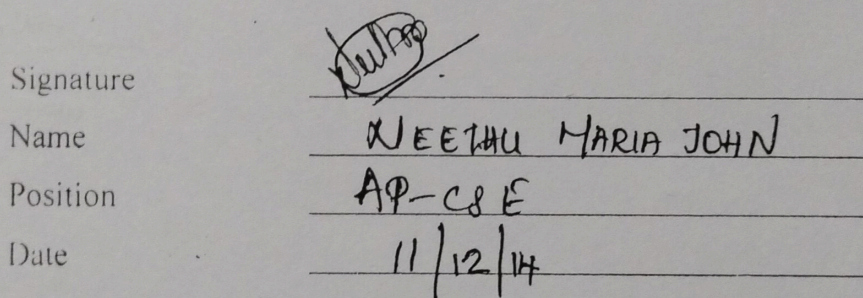 Signature
Name NEETHU MARIA JOHN
Position AP-CSE
Date 11/12/14